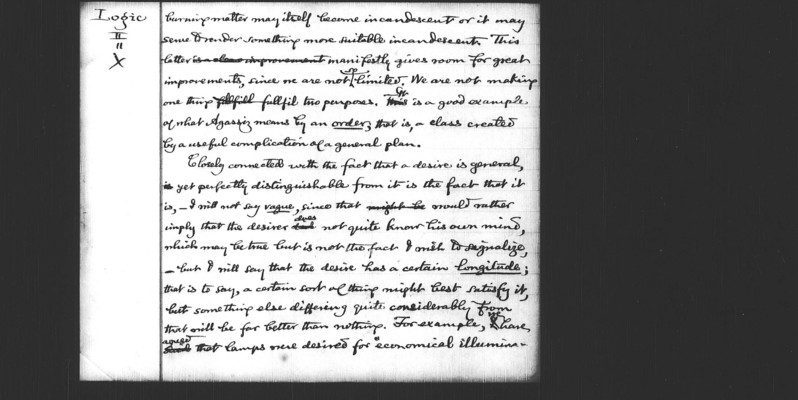 Logic
II
II
X
burning matter may itself become incandescent or it may
serve to render something more suitable incandescent. This
latter is a clear improvement manifestly gives room for great
improvements, since we are not so limited. We are not making
one thing fullfill fullfil two purposes. This It is a good example
of what Agassiz means by an order; that is, a class created
by a useful complication of a general plan.
Closely connected with the fact that a desire is general,
is yet perfectly distinguishable from it is the fact that it
is, – I will not say vague, since that might be would rather
imply that the desirer does not quite know his own mind,
which may be true but is not the fact I wish to signalize,
– but I will say that the desire has a certain longitude;
that is to say, a certain sort of thing might best satisfy it,
but something else differing quite considerably from
that will be far better than nothing. For example, we have
agreed that lamps were desired for "economical illumina-